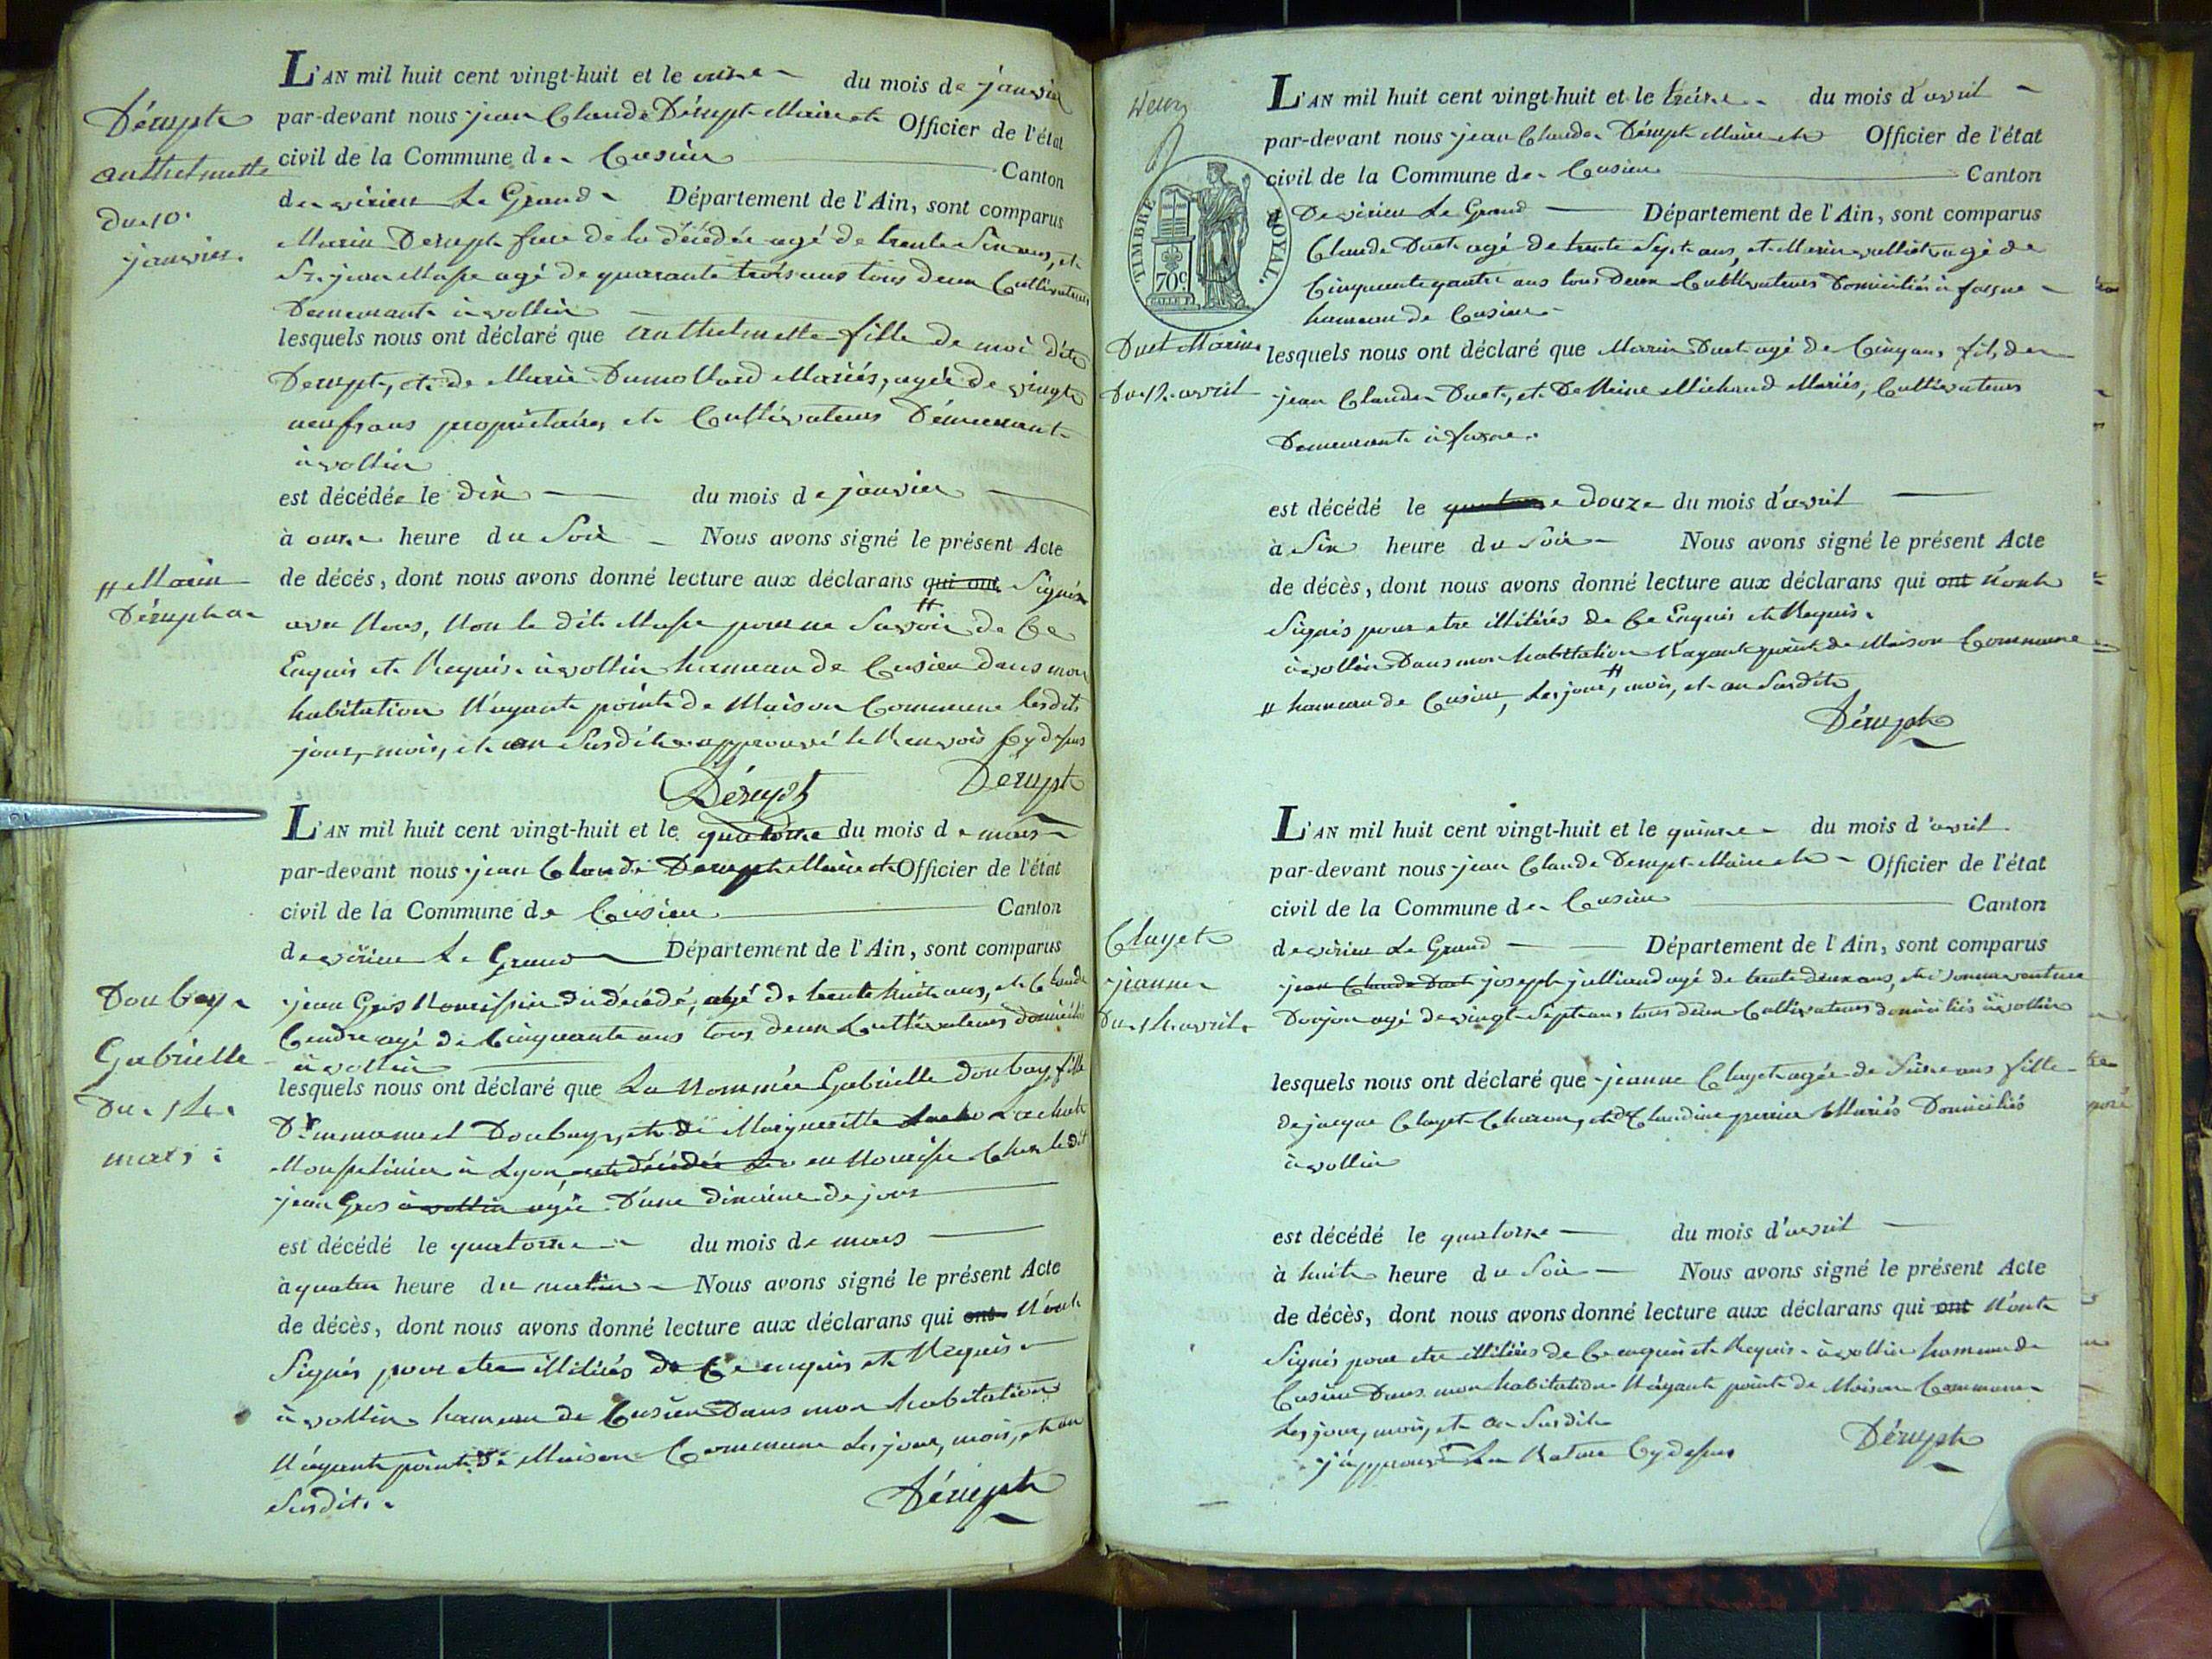 Dérupt
anthelmette
du 10
janvier.
L'AN mil huit cent vingt-huit et le onze du mois de janvier
par-devant nous jean Claude Dérupt Maire et Officier de l'état
civil de la Commune de Cusieu Canton
de virieu Le Grand Département de l'Ain, sont comparus
Marin Derupt de la décédée agé de trente Six ans, et
jean Masse agé de quarante trois ans tous deux Cultivateurs
Demeurant à vollin
lesquels nous ont déclaré que anthelmette fille de moi dit
Derupt, et de Marie Dumollard Mariés, agée de vingt
neuf ans propriétaires et Cultivateurs Demeurant
à vollin
est décédée le dix du mois de janvier
à onze heure du Soir Nous avons signé le présent Acte
de décés, dont nous avons donné lecture aux déclarans qui ont Signés
# Marin
Dérupt a
avec Nous, Non le dit Masse pour ne Savoir # de Ce
Enquis et Requis. à vollin hameau de Cusieu dans mon
habitation N'ayant point de Maison Commune lesdits
jour, mois, et an Susdit approuvé le Renvois Cy dessus
Dérupt Dérupt
L'AN mil huit cent vingt-huit et le quatorze du mois de mars
par-devant nous jean Claude Derupt Maire et Officier de l'état
civil de la Commune de Cusieu Canton
de virieu Le Grand Département de l'Ain, sont comparus
Doubay
Gabrielle
Du 14
mars
jean Gros Nourissier du décédé, agé de trente huit ans, et Claude
Cendre agé de Cinquante ans tous deux Cultivateurs domiciliés
à vollin
lesquels nous ont déclaré que La Nommée Gabrielle Doubay, fille
D'emmanuel Doubay, et de Marguerite
Mousselinier à Lyon, et décédée en Nourisse Chez ledit
jean Gros à vollin agée D'une dixaine de jour
est décédé le quatorze du mois de mars
à quatre heure du matin Nous avons signé le présent Acte
de décès, dont nous avons donné lecture aux déclarans qui ont N'ont
Signés pour etre illitirés de Ce enquis et Requis
à vollin hameau de Cusieu Dans mon habitation
N'ayant point de Maison Commune Les jour, mois, et an
Susdits.
Dérupt
TIMBRE ROYAL.
70c
L'AN mil huit cent vingt-huit et le treize du mois d'avril
par-devant nous jean Claude Dérupt Maire et Officier de l'état
civil de la Commune de Cusieu Canton
De virieu Le Grand Département de l'Ain, sont comparus
Claude Duet agé de trente Sept ans, et Marin agé de
Cinquante quatre ans tous deux Cultivateurs Domiciliés à
hameau de Cusieu
Duet Marin
Du 12 avril
lesquels nous ont déclaré que Marin Duet agé de Cinq ans fils de
jean Claude Duet, et De Reine Michaud Mariés, Cultivateurs
Demeurant à
est décédé le douze du mois d'avril
à Six heure du Soir Nous avons signé le présent Acte
de décès, dont nous avons donné lecture aux déclarans qui ont N'ont
Signés pour etre illitirés de Ce Enquis et Requis.
à vollin Dans mon habitation N'ayant point de Maison Commune
# hameau de Cusieu, Les jour, # mois, et an Susdit
Dérupt
L'AN mil huit cent vingt-huit et le quinze du mois d'avril
par-devant nous jean Claude Derupt Maire et Officier de l'état
civil de la Commune de Cusieu Canton
de virieu Le Grand Département de l'Ain, sont comparus
Clayet
jeanne
Du 14 avril
jean Claude Duet joseph julliand agé de trente deux ans, et
Donjon agé de vingt Sept ans tous deux Cultivateurs domiciliés à vollin
lesquels nous ont déclaré que jeanne Clayet agée de Seize ans fille
de jacque Clayet Charon, et de Claudine perrier Mariés Domiciliés
à vollin
est décédé le quatorze du mois d'avril
à huit heure du Soir Nous avons signé le présent Acte
de décès, dont nous avons donné lecture aux déclarans qui ont N'ont
Signés pour etre illitirés de Ce enquis et Requis. à vollin hameau de
Cusieu Dans mon habitation N'ayant point de Maison Commune
Les jour, mois, et an Susdit
j'approuve La Rature Cy dessus
Dérupt